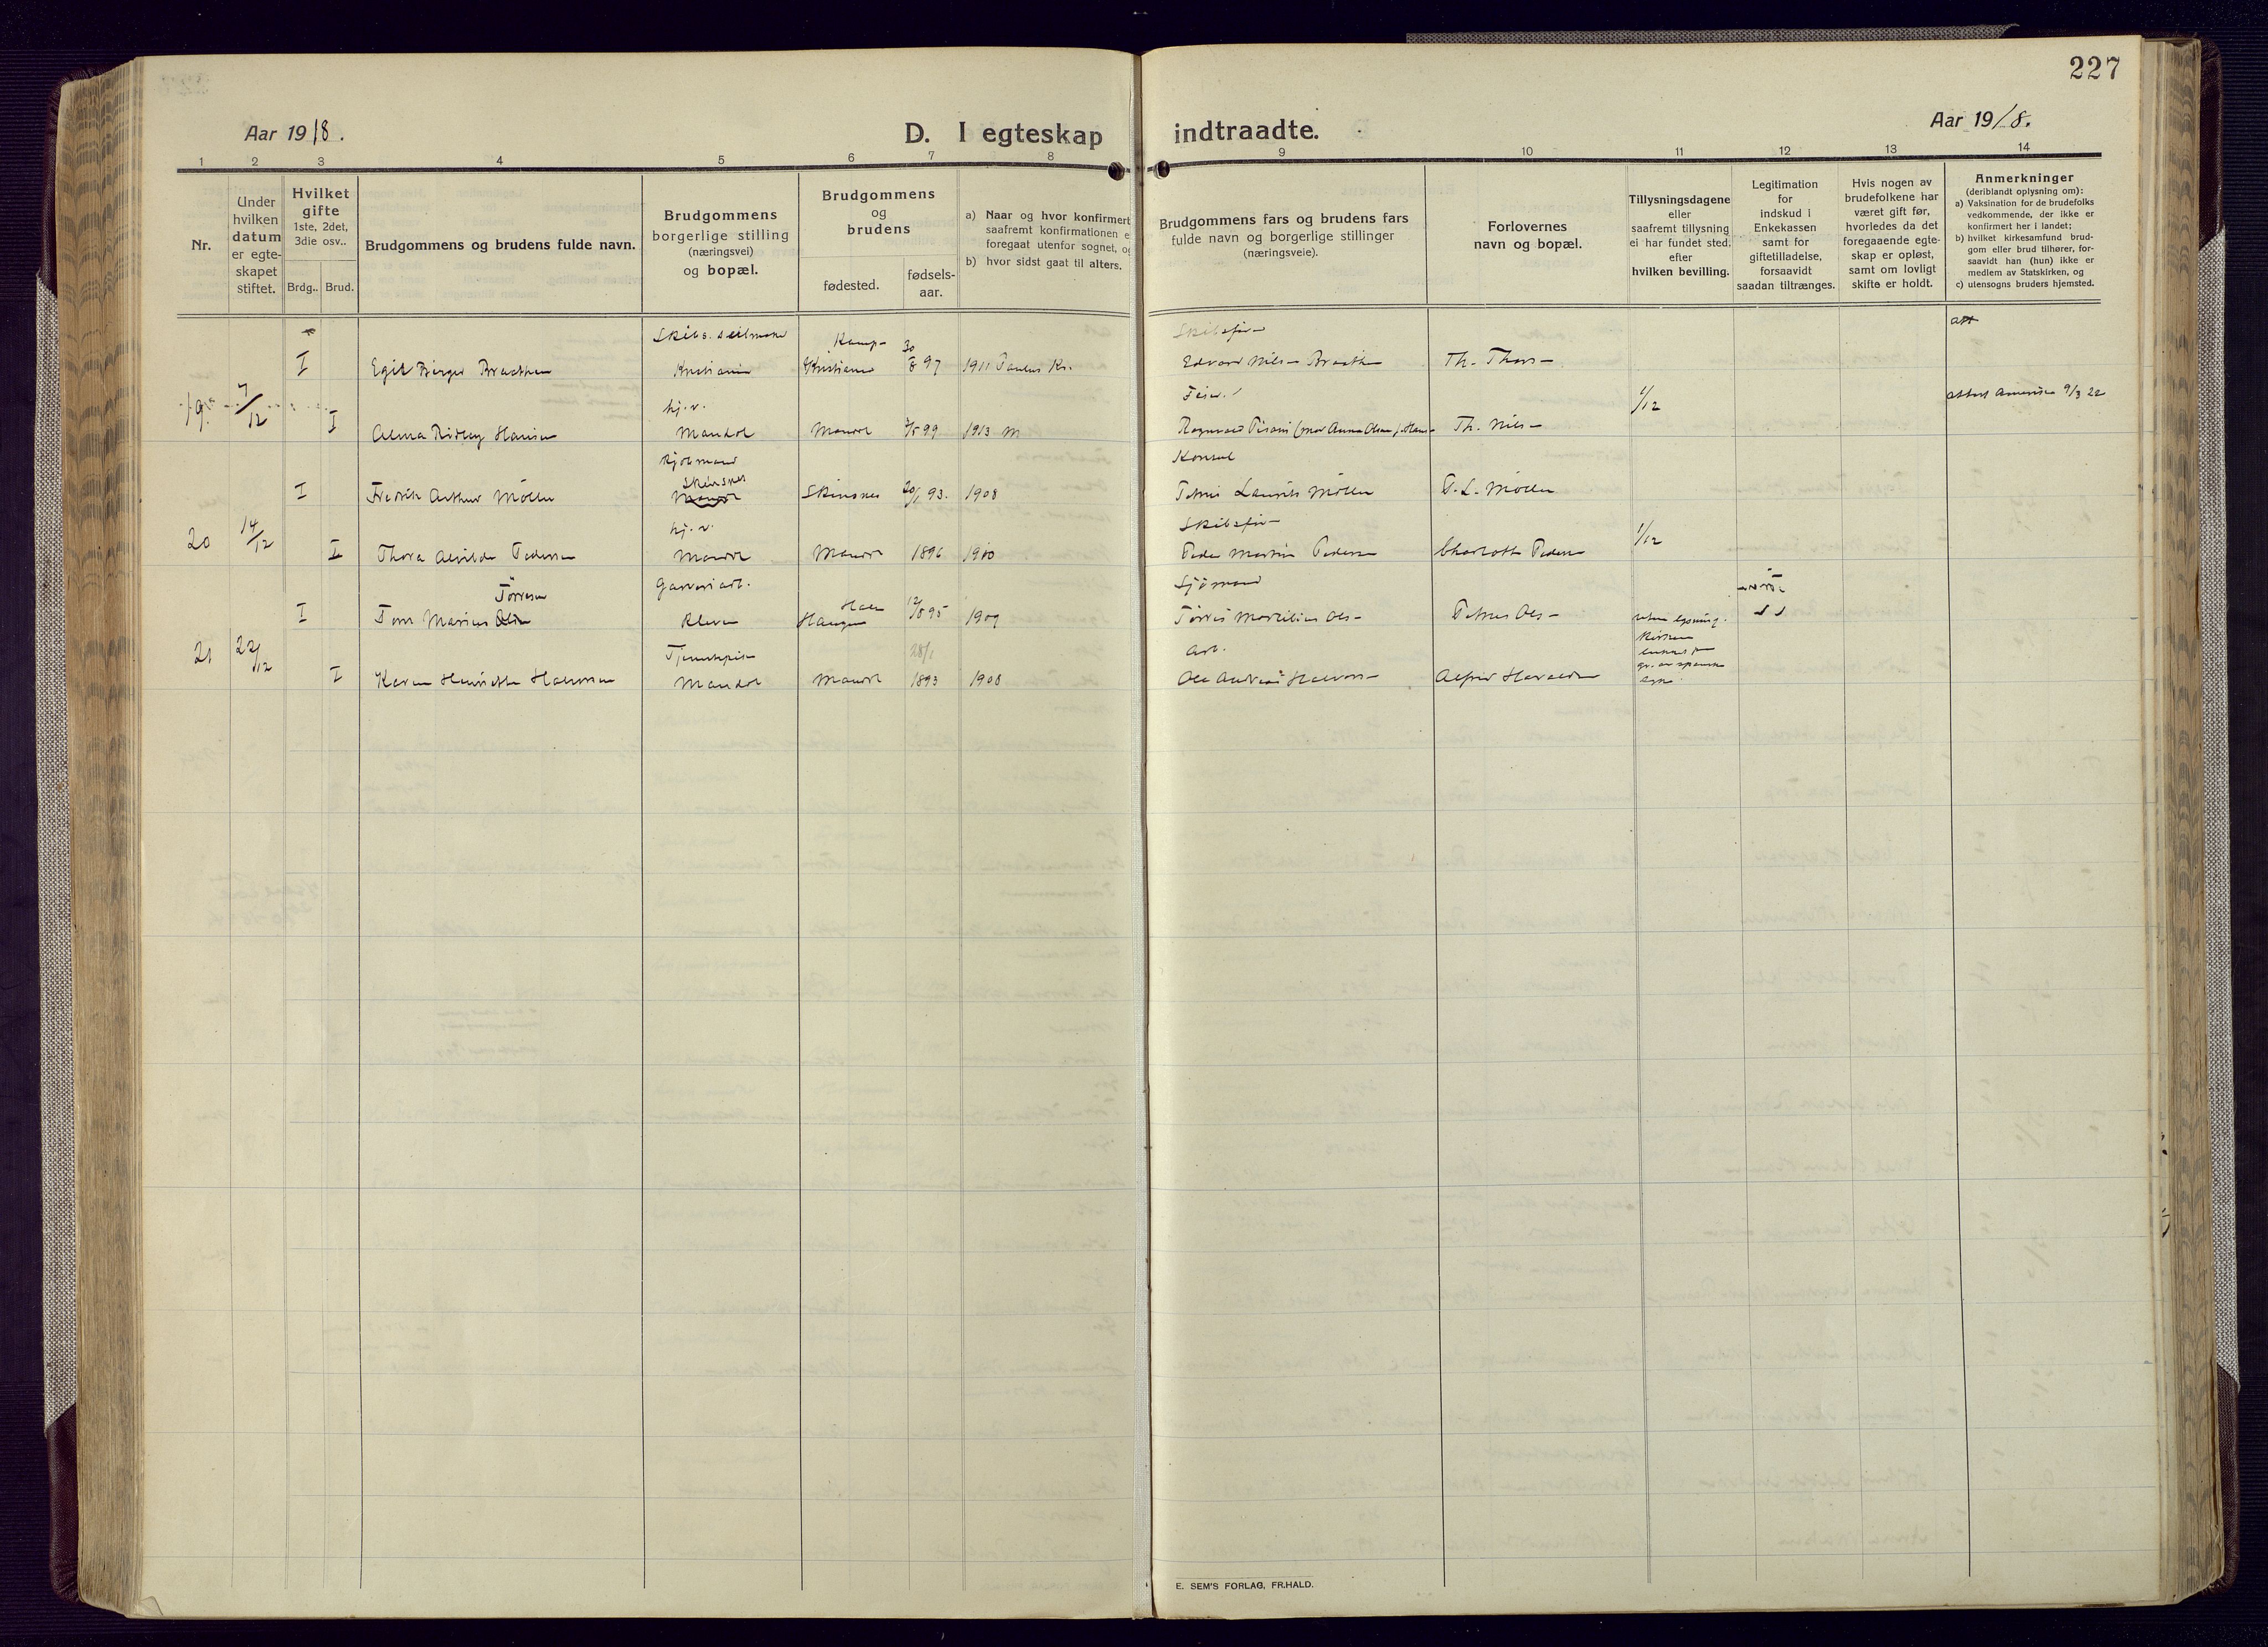 227
Aar 1918.
D. I egteskap indtraadte.
Aar 1918.
1 2 3 4 5 6 7 8 9 10 11 12 13 14
Nr.
Under
hvilken
datum
er egte-
skapet
stiftet.
Hvilket
gifte
1ste, 2det,
3die osv..
Brdg.. Brud.
Brudgommens og brudens fulde navn.
Brudgommens
borgerlige stilling
(næringsvei)
og bopæl.
Brudgommens
og
brudens
fødested.
fødsels-
aar.
a) Naar og hvor konfirmert
saafremt konfirmationen e
foregaat utenfor sognet, og
b) hvor sidst gaat til alters.
Brudgommens fars og brudens fars
fulde navn og borgerlige stillinger
(næringsveie).
Forlovernes
navn og bopæl.
Tillysningsdagene
eller
saafremt tillysning
ei har fundet sted:
efter
hvilken bevilling.
Legitimation
for
indskud i
Enkekassen
samt for
giftetilladelse,
forsaavidt
saadan tiltrænges.
Hvis nogen av
brudefolkene har
været gift før,
hvorledes da det
foregaaende egte-
skap er opløst,
samt om lovligt
skifte er holdt.
Anmerkninger
(deriblandt oplysning om):
a) Vaksination for de brudefolks
vedkommende, der ikke er
konfirmert her i landet;
b) hvilket kirkesamfund brud-
gom eller brud tilhører, for-
saavidt han (hun) ikke er
medlem av Statskirken, og
c) utensogns bruders hjemsted.
19. 7/12
I Egil Birger Braathen Kristiania Kristiania 30/8 97 1911 Paulus Kr.
Edvard Nils– Braathen Th. Thors–
att
hj. v.
I Alma Hansen Mandal Mandal 99 1913 M
Th. Nils–
1/12
attest Amerika 9/3 22
20 14/12
I Fredrik Arthur Möller Skinsnes Skinsnes 20/1 93. 1908
Konsul
Petrus Laurits Möller P. L. Möller
hj. v.
I Thora Alvilde Pedersen Mandal Mandal 1896 1910
Skibsfør–
Peder Martin Pedersen Charlotte Peders–
1/12
21 22/12
Garveriarb.
I Tom Marius Törresen Kleven 12/8 95 1909
Sjömand
Törres Martilius Ols– Petrus Ols–
I Karen Henriette Halvorsen Mandal Mandal 28/1 1893 1908
Arb.
Ole Andreas Halvors– Alfred Haralds–
uten lysning.
Kirken
lukket
gr. av spanske
syke
E. SEM'S FORLAG, FR.HALD.